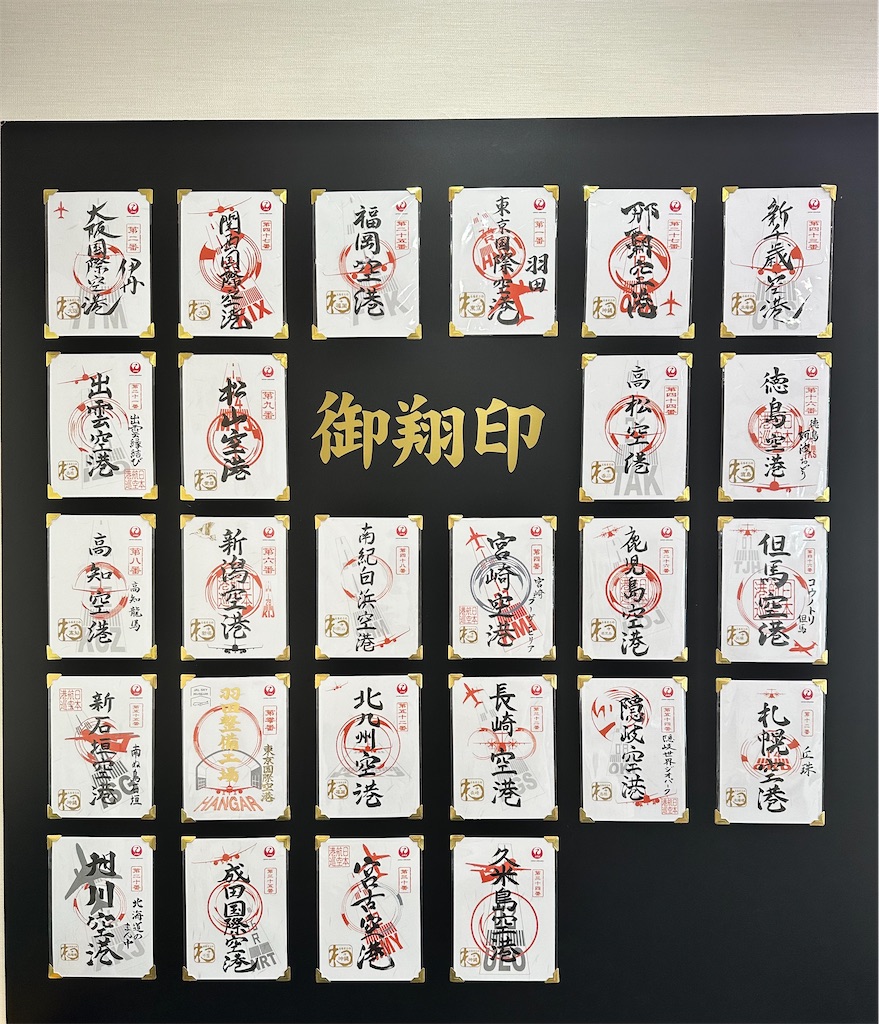 第二番
大阪国際空港
伊丹
ITM
第四十七番
関西国際空港
KIX
第三十五番
福岡空港
FUK
第一番
東京国際空港
羽田
第三十七番
那覇空港
第四十三番
新千歳空港
CTS
第二十一番
出雲空港
出雲縁結び
日本航空
第九番
松山空港
御翔印
第四十四番
高松空港
TAK
第十六番
徳島空港
徳島阿波おどり
第八番
高知空港
高知龍馬
KCZ
第六番
新潟空港
KIJ
第四十八番
南紀白浜空港
第四番
宮崎空港
KMI
第二十六番
鹿児島空港
KOJ
第四十六番
但馬空港
コウノトリ但馬
TJH
日本航空港巡
第五十五番
新石垣空港
南ぬ島石垣
ISG
第零番
羽田整備工場
東京国際空港
HANGAR
第五十二番
北九州空港
第三十二番
長崎空港
NGS
第五十四番
隠岐空港
隠岐世界ジオパーク
OKI
第十二番
札幌空港
丘珠
第三十番
旭川空港
北海道のまん中
AKJ
第三十五番
成田国際空港
NRT
日本航空港巡
宮古空港
MMY
第三十四番
久米島空港
UEO